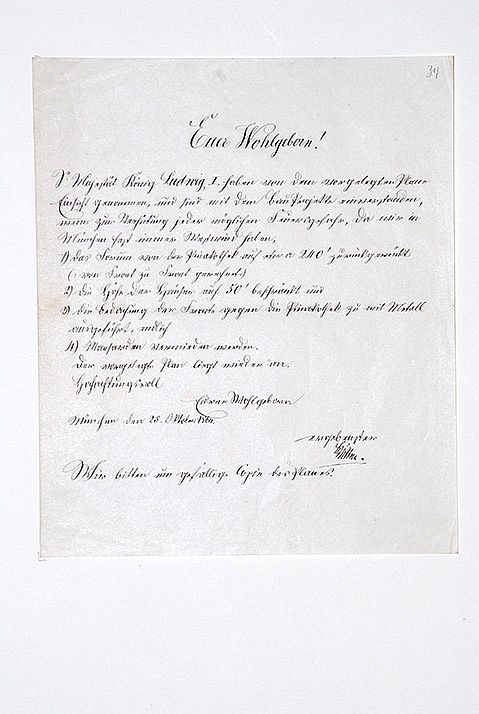 34
Euer Wohlgeborn!
Se Majestät König Ludwig I. haben von dem vorgelegten Plane
Einsicht genommen, und sind mit dem Bauprojekte einverstanden,
wenn zur Verhütung jeder möglichen Feuersgefahr, da wir in
München fast immer Westwind haben,
1) das Forum von der Pinakothek auf etwa 240' zurückgerückt
(: von Front zu Front gerechnet:)
2) die Höhe der Häuser auf 50' beschränkt und
3) die Bedachung der Fronte gegen die Pinakothek zu mit Metall
ausgeführt, endlich
4) Mansarden vermieden werden.
Der vorgelegte Plan liegt wieder an.
Hochachtungsvoll
Euerer Wohlgeborn
München den 28. Oktober
ergebenster
Wir bitten um gefällige Copie des Planes.